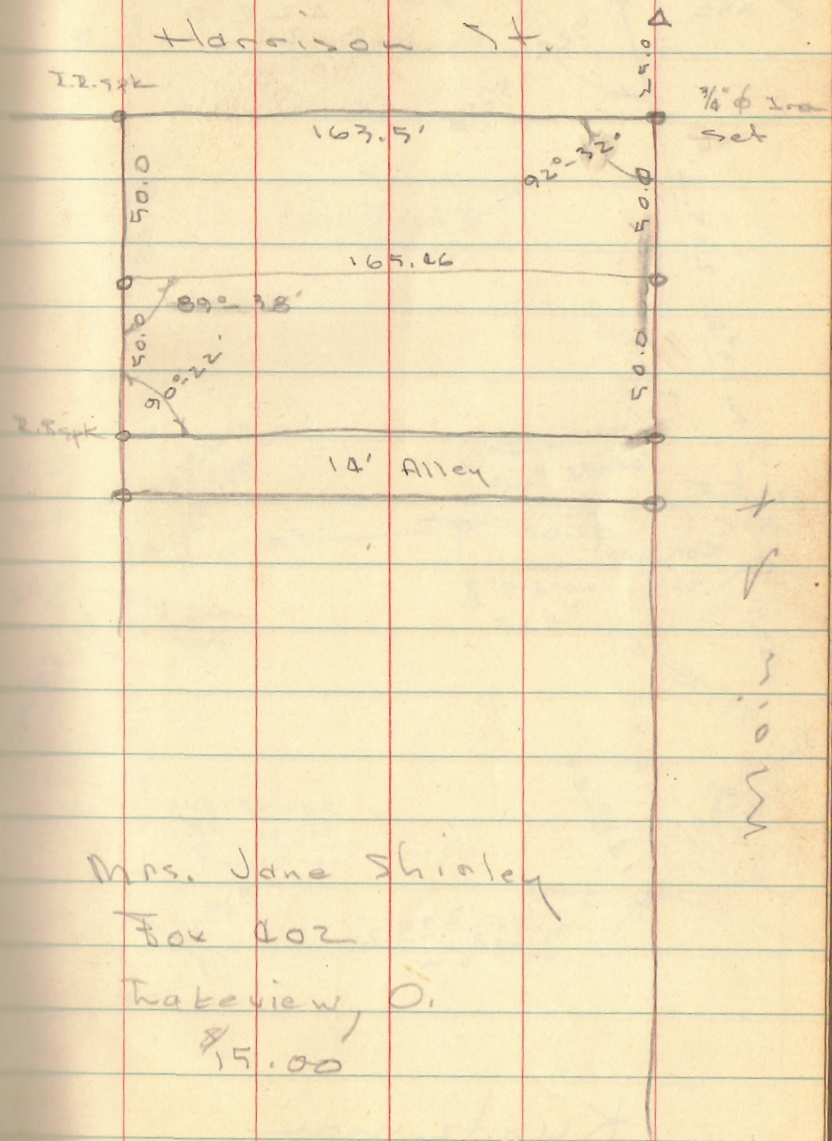 Harrison St.
25.0
R.R. spk
3/4" ϕ Iron
Set
163.5'
92°-32'
50.0
50.0
165.46
89°-38'
50.0
50.0
90°-22'
R.R. spk
14' Alley
Main St.
Mrs. Jane Shirley
Box 402
Lakeview, O.
$15.00